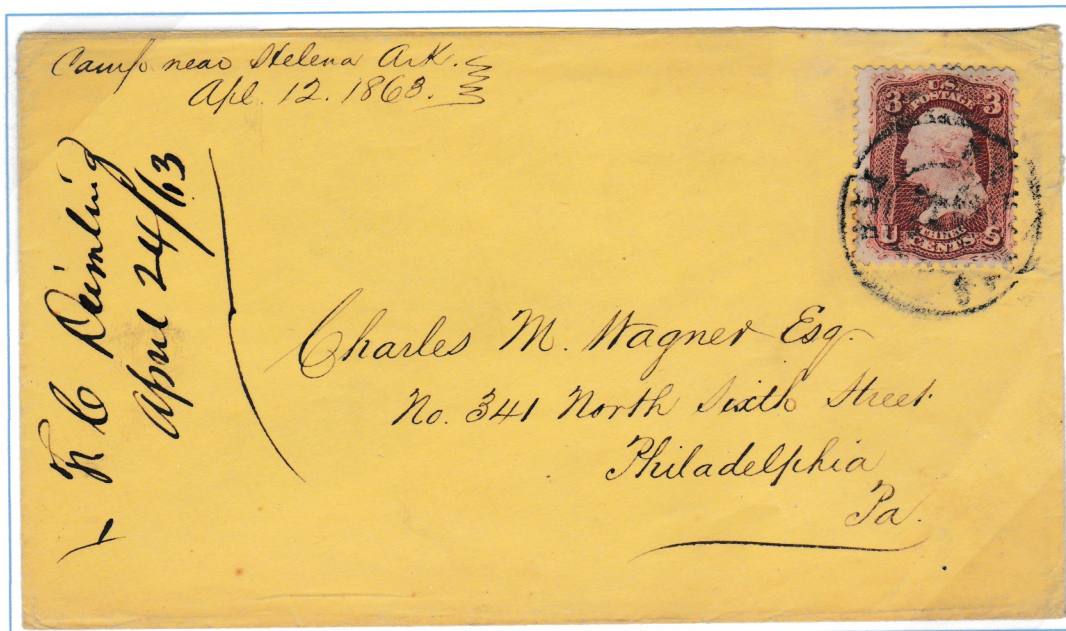 Camp near Helena Ark.
Apl. 12. 1863.
April 24/63
U.S.
POSTAGE
3 3
U S
THREE
CENTS
Charles M. Wagner Esq.
No. 341 North Sixth Street
Philadelphia
Pa.